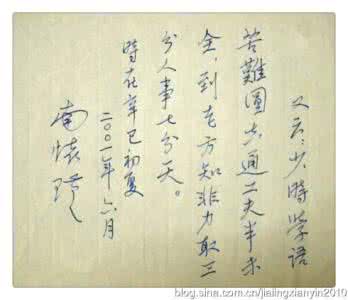 又云:少時学语
苦難圓只道工夫半未
全,到老方知非力取三
分人事七分天。
時在辛巳初夏
二〇〇一年六月
南懷瑾
blog.sina.com.cn/jialingxianyin2010